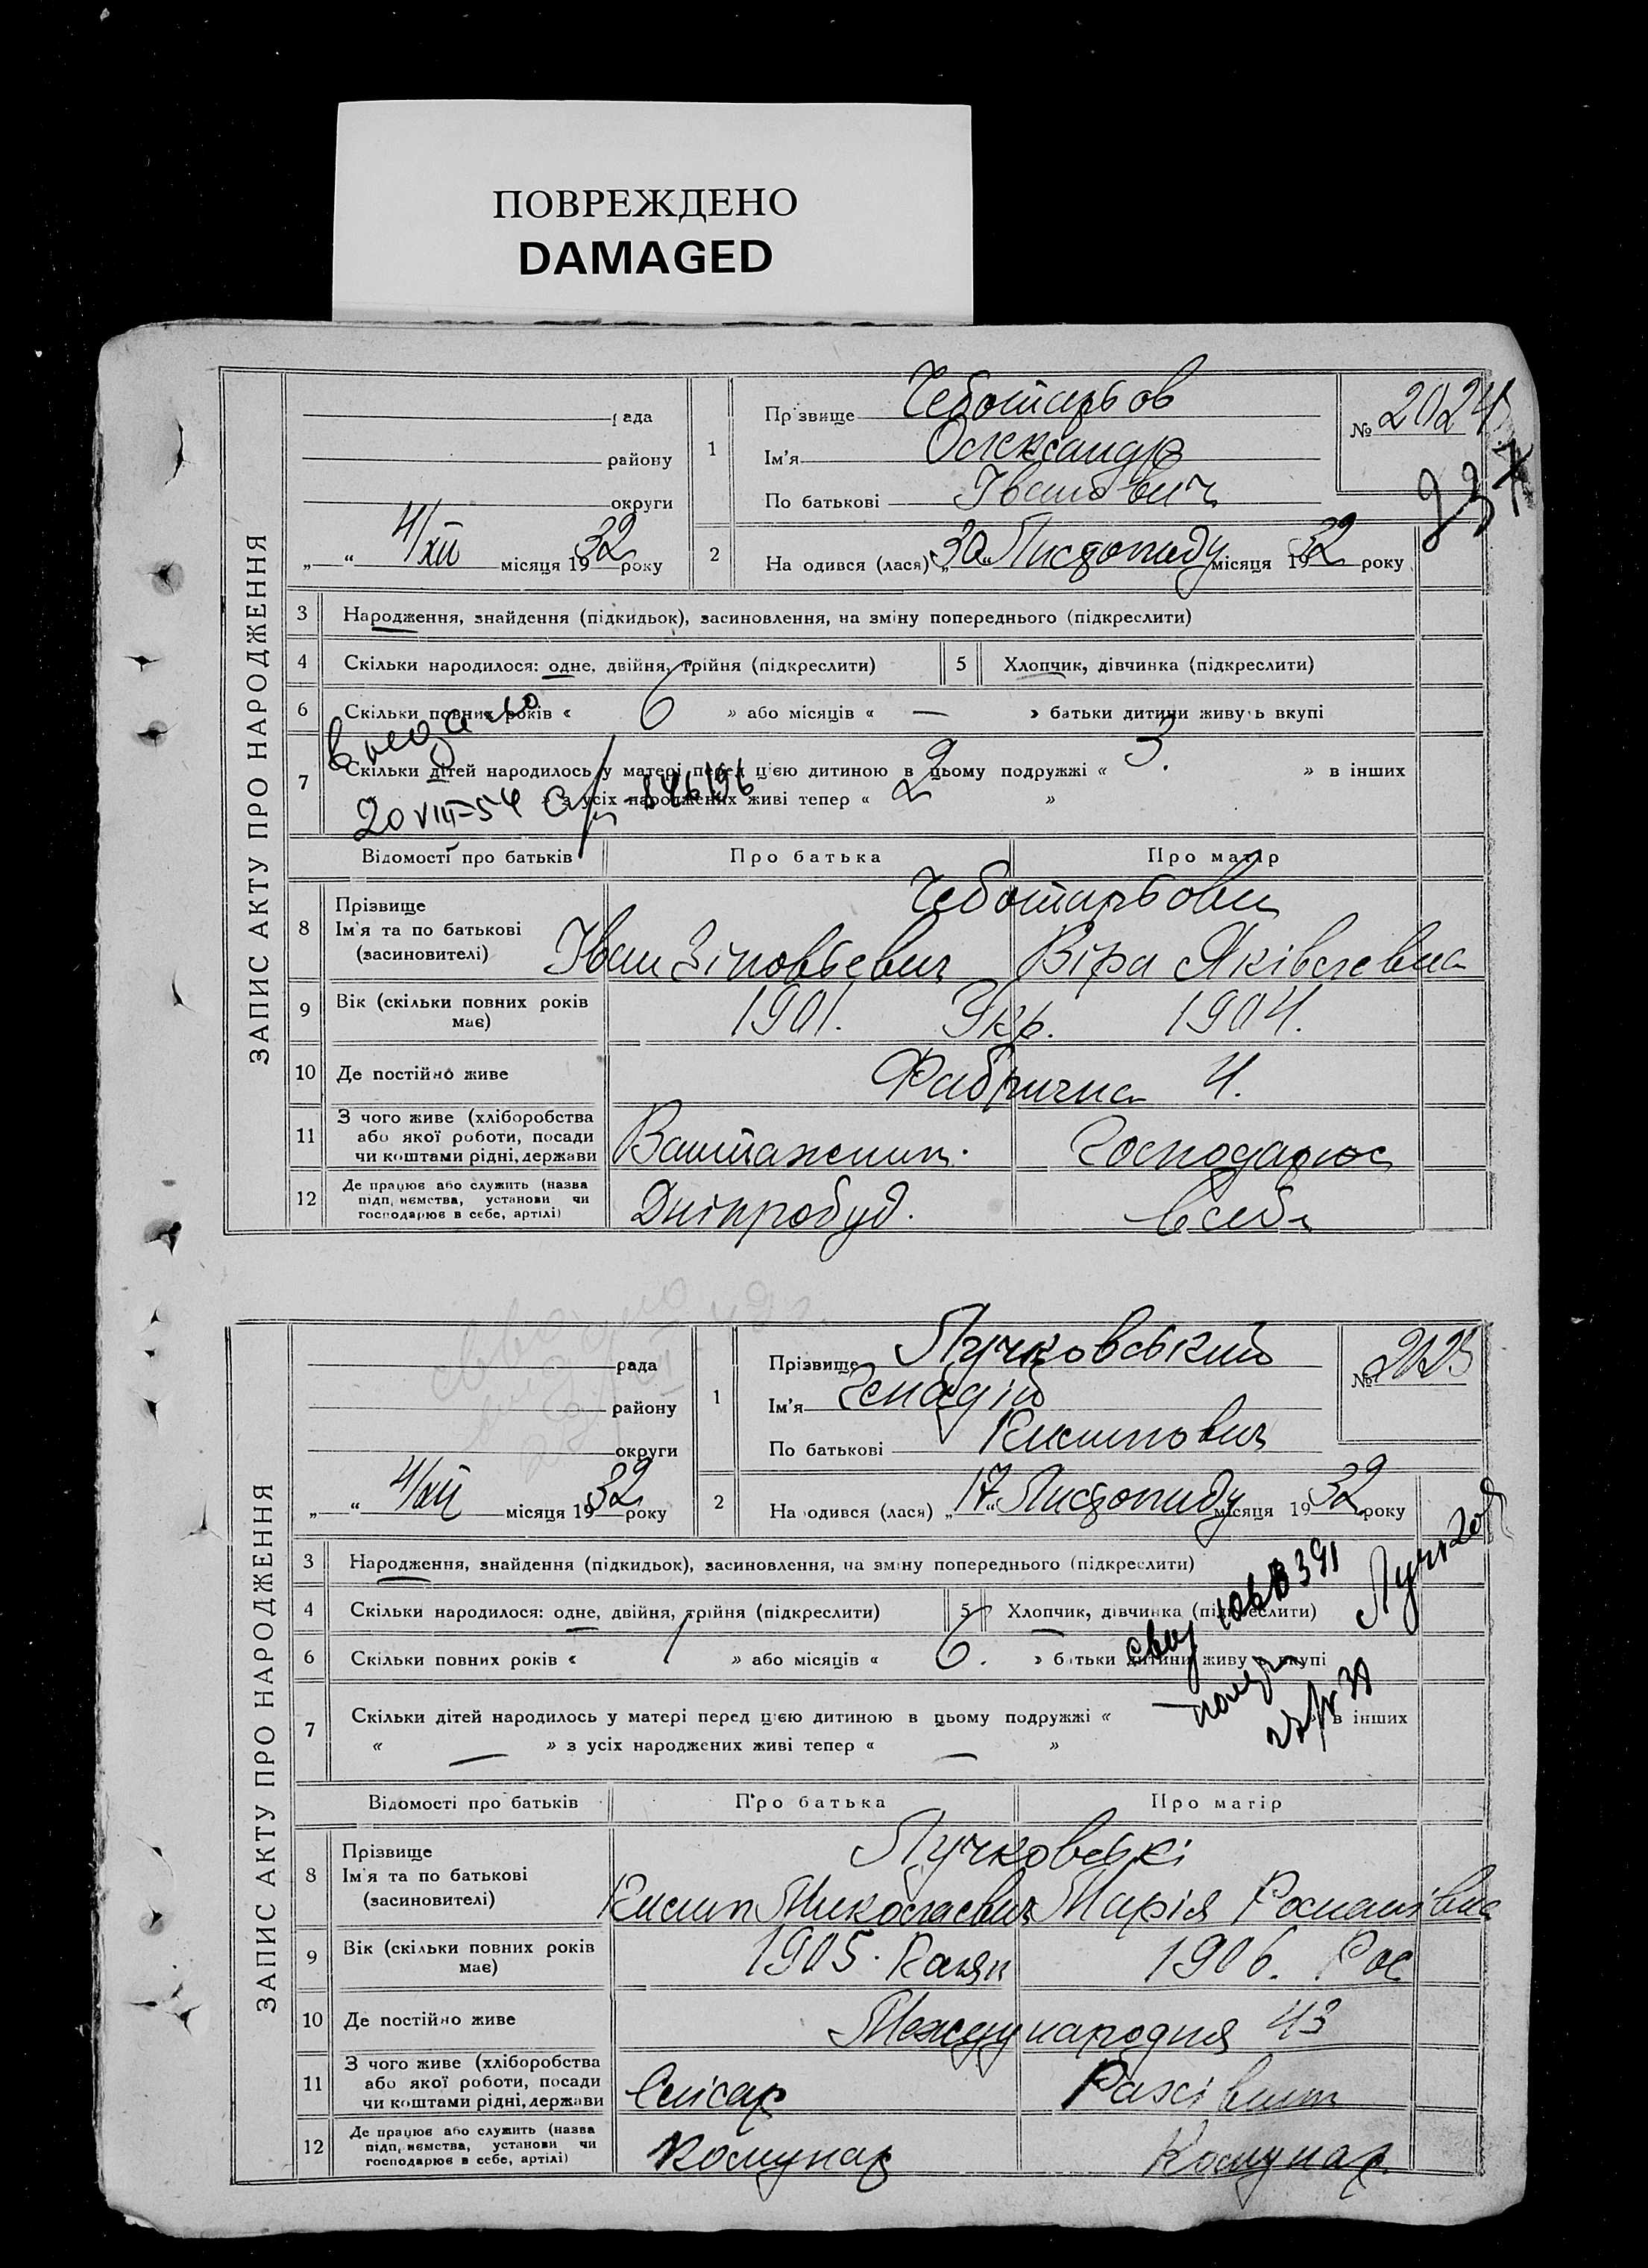 ПОВРЕЖДЕНО
DAMAGED
ЗАПИС АКТУ ПРО НАРОДЖЕННЯ
рада
району
округи
„ “ 4/XII місяця 1932 року
1
Прізвище Чеботарьов
Ім'я Олександр
По батькові Іванович
№ 2024
2 На одився (лася) „30“ Листопаду місяця 1932 року
3 Народження, знайдення (підкидьок), засиновлення, на зміну попереднього (підкреслити)
4 Скільки народилося: одне, двійня, трійня (підкреслити) 5 Хлопчик, дівчинка (підкреслити)
6 Скільки повних років « 6 » або місяців « — » батьки дитини живуть вкупі
7 Скільки дітей народилось у матері перед цією дитиною в цьому подружжі « 3. » в інших
» з усіх народжених живі тепер « 2 »
20 VIII-54
Відомості про батьків Про батька Про матір
8 Прізвище
Ім'я та по батькові
(засиновителі)
Чеботарьови
Іван Зіновьевич Віра Яківлевна
9 Вік (скільки повних років має) 1901. Укр. 1904.
10 Де постійно живе Фабрична 4.
11 З чого живе (хліборобства
або якої роботи, посади
чи коштами рідні, держави
Вантажник. Господарює
12 Де працює або служить (назва
підп, иємства, установи чи
господарює в себе, артілі)
Дніпробуд. в себе
ЗАПИС АКТУ ПРО НАРОДЖЕННЯ
рада
району
округи
„ “ 4/XII місяця 1932 року
1
Прізвище Лучковський
Ім'я Генадій
По батькові Кисипович
№ 2025
2 На одився (лася) „17“ Листопаду місяця 1932 року
3 Народження, знайдення (підкидьок), засиновлення, на зміну попереднього (підкреслити)
4 Скільки народилося: одне, двійня, трійня (підкреслити) 5 Хлопчик, дівчинка (підкреслити)
6 Скільки повних років « 1 » або місяців « 6. » батьки дитини живу вкупі
7 Скільки дітей народилось у матері перед цією дитиною в цьому подружжі « » в інших
« — » з усіх народжених живі тепер « — »
Відомості про батьків Про батька Про матір
8 Прізвище
Ім'я та по батькові
(засиновителі)
Лучковські
Миколаевич Марія Романівна
9 Вік (скільки повних років має) 1905. 1906. Рос
10 Де постійно живе Международня 43
11 З чого живе (хліборобства
або якої роботи, посади
чи коштами рідні, держави
Слісар Рахівник
12 Де працює або служить (назва
підп, иємства, установи чи
господарює в себе, артілі)
Комунар Комунар.